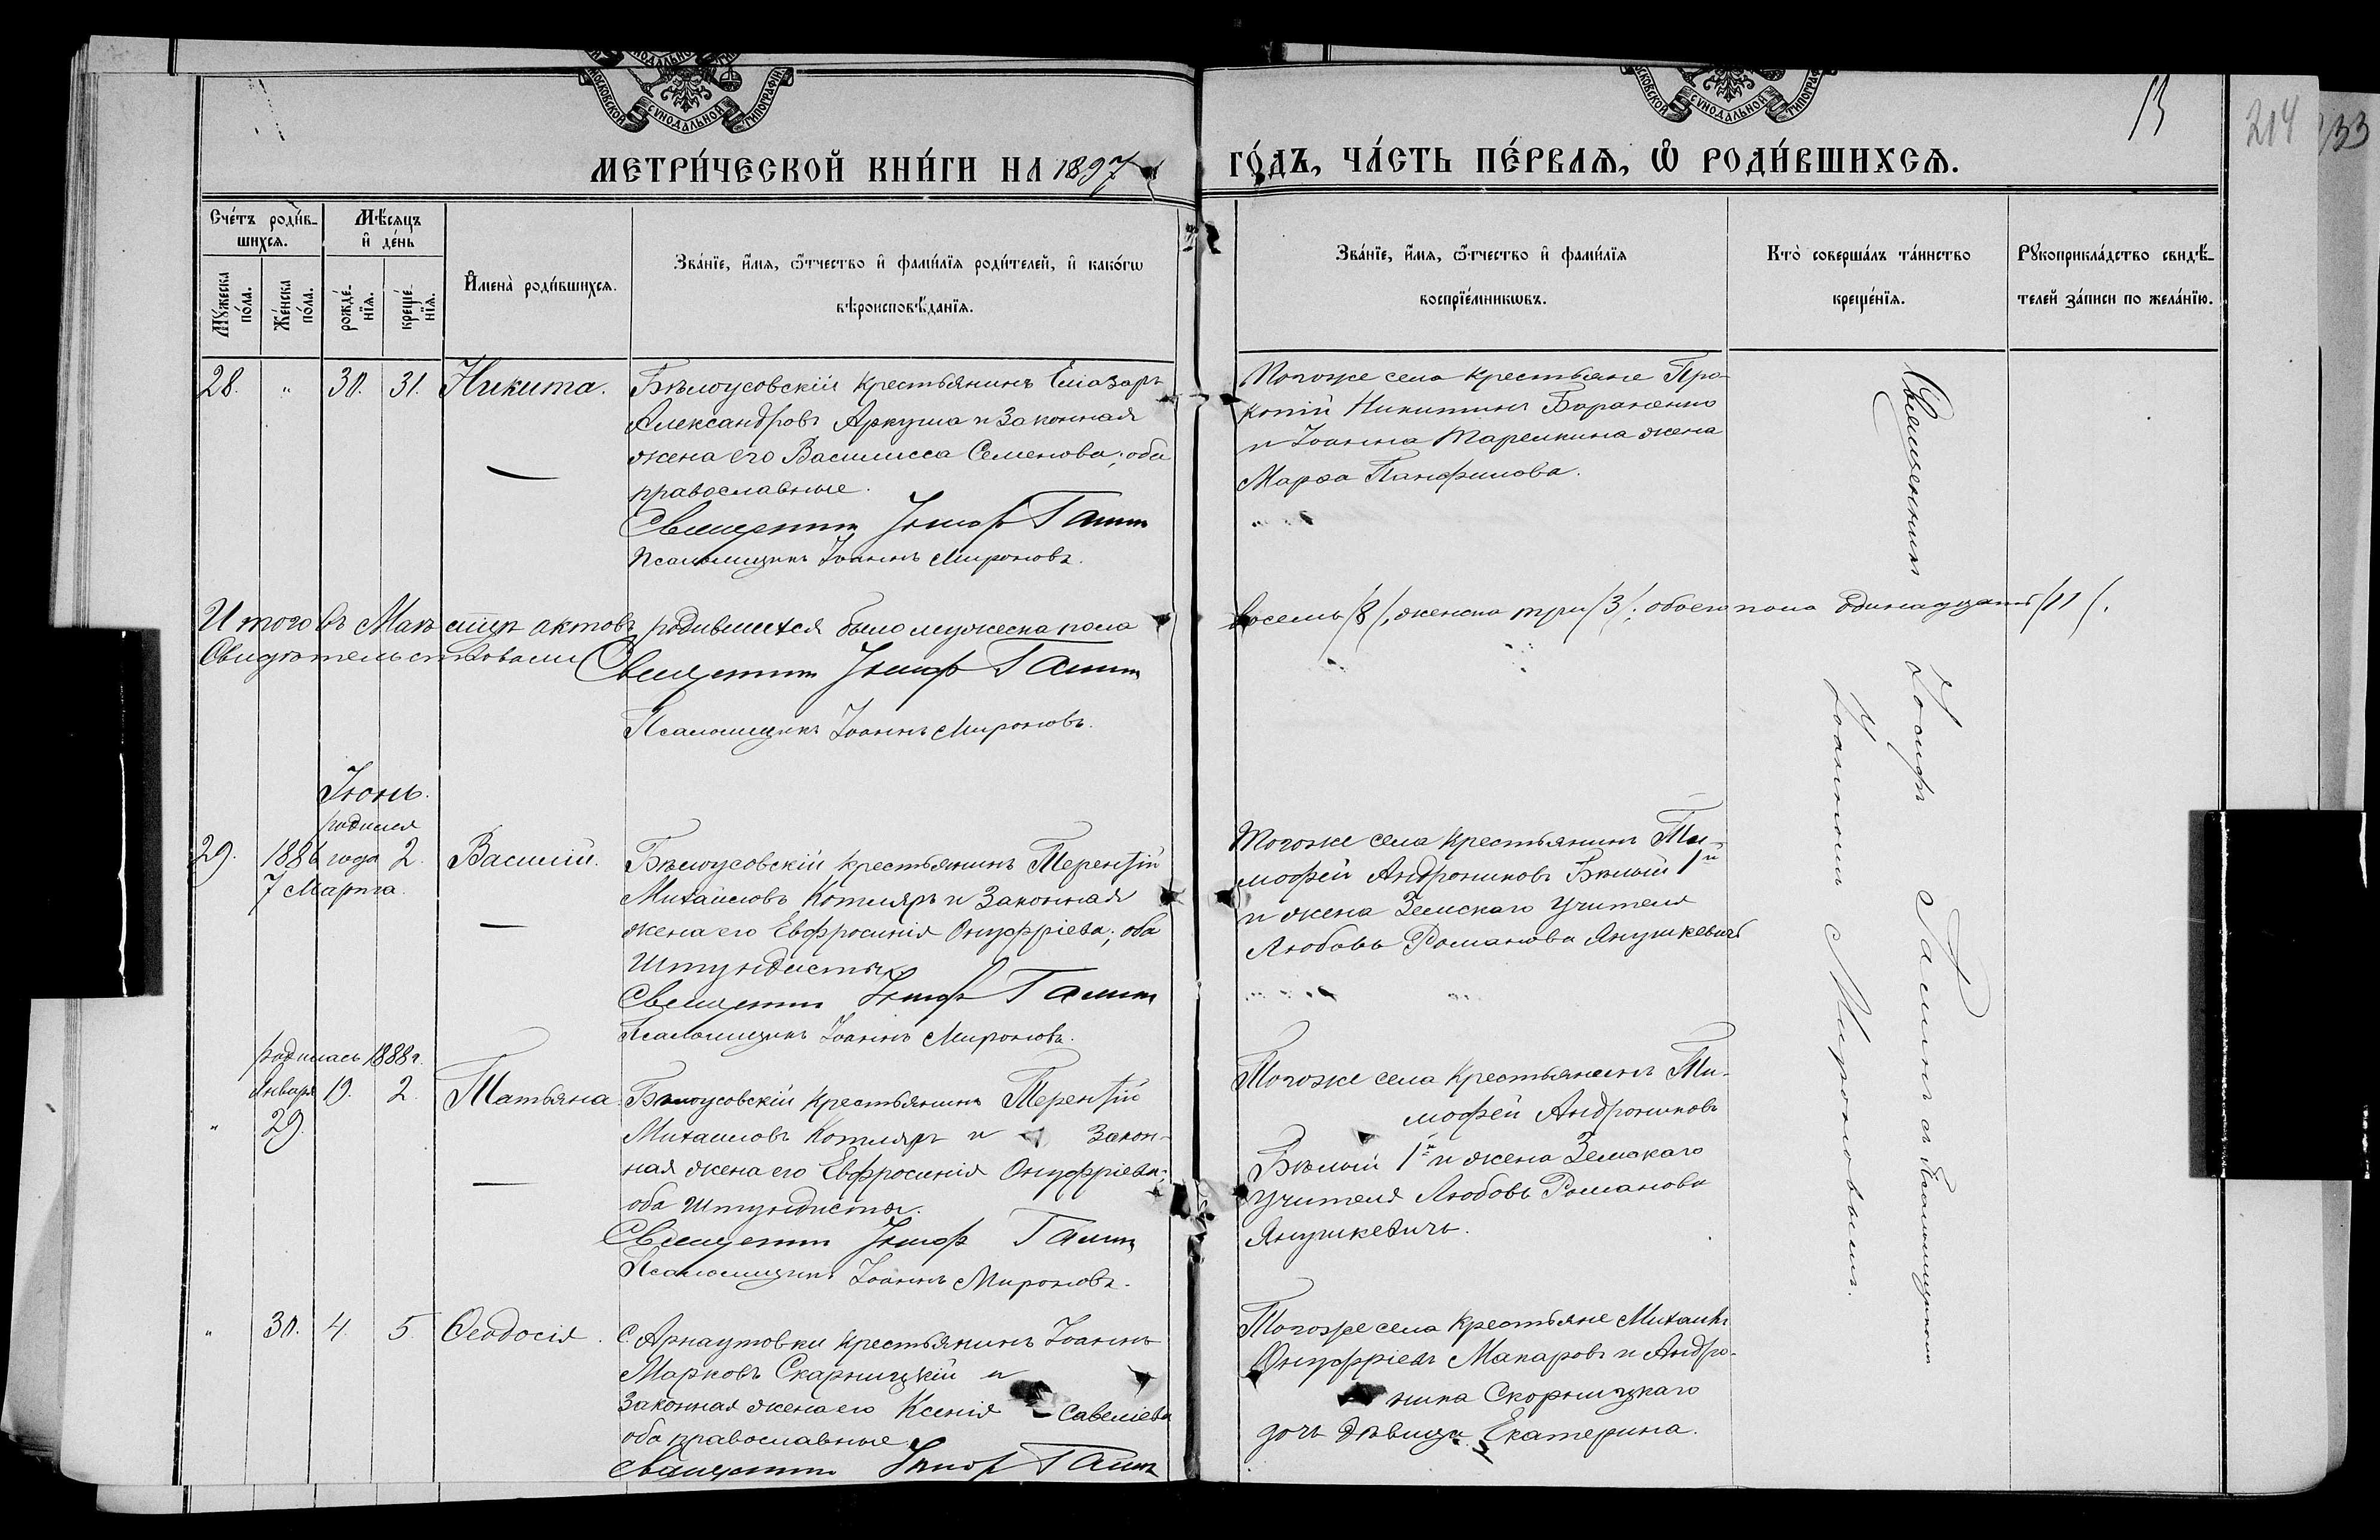 МОСКОВСКОЙ СѴНОДАЛЬНОЙ ТИПОГРАФІИ
МОСКОВСКОЙ СѴНОДАЛЬНОЙ ТИПОГРАФІИ
13
214
133
МЕТРИ́ЧЕСКОЙ КНИ́ГИ НА 1897 ГО́ДЪ, ЧА́СТЬ ПЕ́РВАѦ, Ѽ РОДИ́ВШИХСѦ.
Сче́тъ роди́в-
шихсѧ.
Мꙋ́жеска по́ла.
Же́нска по́ла.
Мѣ́сѧцъ
и҆ де́нь
рожде́-
нїѧ.
креще́-
нїѧ.
И҆мена̀ роди́вшихсѧ.
Зва́нїе, и҆́мѧ, ѻ҆́тчество и҆ фами́лїѧ роди́телей, и҆ како́гѡ
вѣроисповѣ́данїѧ.
Зва́нїе, и҆́мѧ, ѻ҆́тчество и҆ фами́лїѧ
воспрїе́мникѡвъ.
Кто̀ соверша́лъ та́инство
креще́нїѧ.
Рꙋкоприкла́дство свидѣ́-
телей за́писи по жела́нїю.
28. " 30. 31. Никита.
Бѣлоусовскій крестьянинъ Елiазаръ
Александровъ Аркуша и законная
жена его Василисса Семенова; оба
православные.
Священникъ Іосиф Галин
Псаломщикъ Іоаннъ Мироновъ.
Тогоже села крестьяне Про-
копій Никитинъ Бараненко
и Іоанна Тарелкина жена
Марѳа Панфилова.
Итого въ Маѣ мцѣ актовъ родившихся было мужеска пола восемь /8/, женска три /3/; обоего пола одинадцать /11/.
Свидѣтельствовали Священникъ Іосиф Галин
Псаломщикъ Іоаннъ Мироновъ.
Іюнь.
родился
29. 1886 года 2. Василій.
7 Марта.
Бѣлоусовскій крестьянинъ Терентій
Михаиловъ Котляръ и законная
жена его Евфросинія Онуфріева; оба
штундисты.
Священникъ Іосиф Галин
Псаломщикъ Іоаннъ Мироновъ.
Тогоже села крестьянинъ Ти-
мофей Андрониковъ Бѣлый 1й
и жена Земскаго учителя
Любовь Романова Янушкевичъ
родилась 1888 г.
Января 19. 2. Татьяна.
" 29.
Бѣлоусовскій крестьянинъ Терентій
Михаиловъ Котляръ и закон-
ная жена его Евфросинія Онуфріева;
оба штундисты.
Священникъ Іосиф Галин
Псаломщикъ Іоаннъ Мироновъ.
Тогоже села крестьянинъ Ти-
мофей Андрониковъ
Бѣлый 1й и жена Земскаго
учителя Любовь Романова
Янушкевичъ.
" 30. 4. 5. Ѳеодосія.
С. Арнаутовки крестьянинъ Іоаннъ
Марковъ Скарницкій и
законная жена его Ксенія Савеліева
оба православные.
Священникъ Іосиф Галин
Тогоже села крестьяне Михаилъ
Онуфріевъ Макаровъ и Андро-
ника Скорницкаго
дочь дѣвица Екатерина.
Священникъ Іосифъ Галинъ съ Псаломщикомъ
Іоанномъ Мироновымъ.